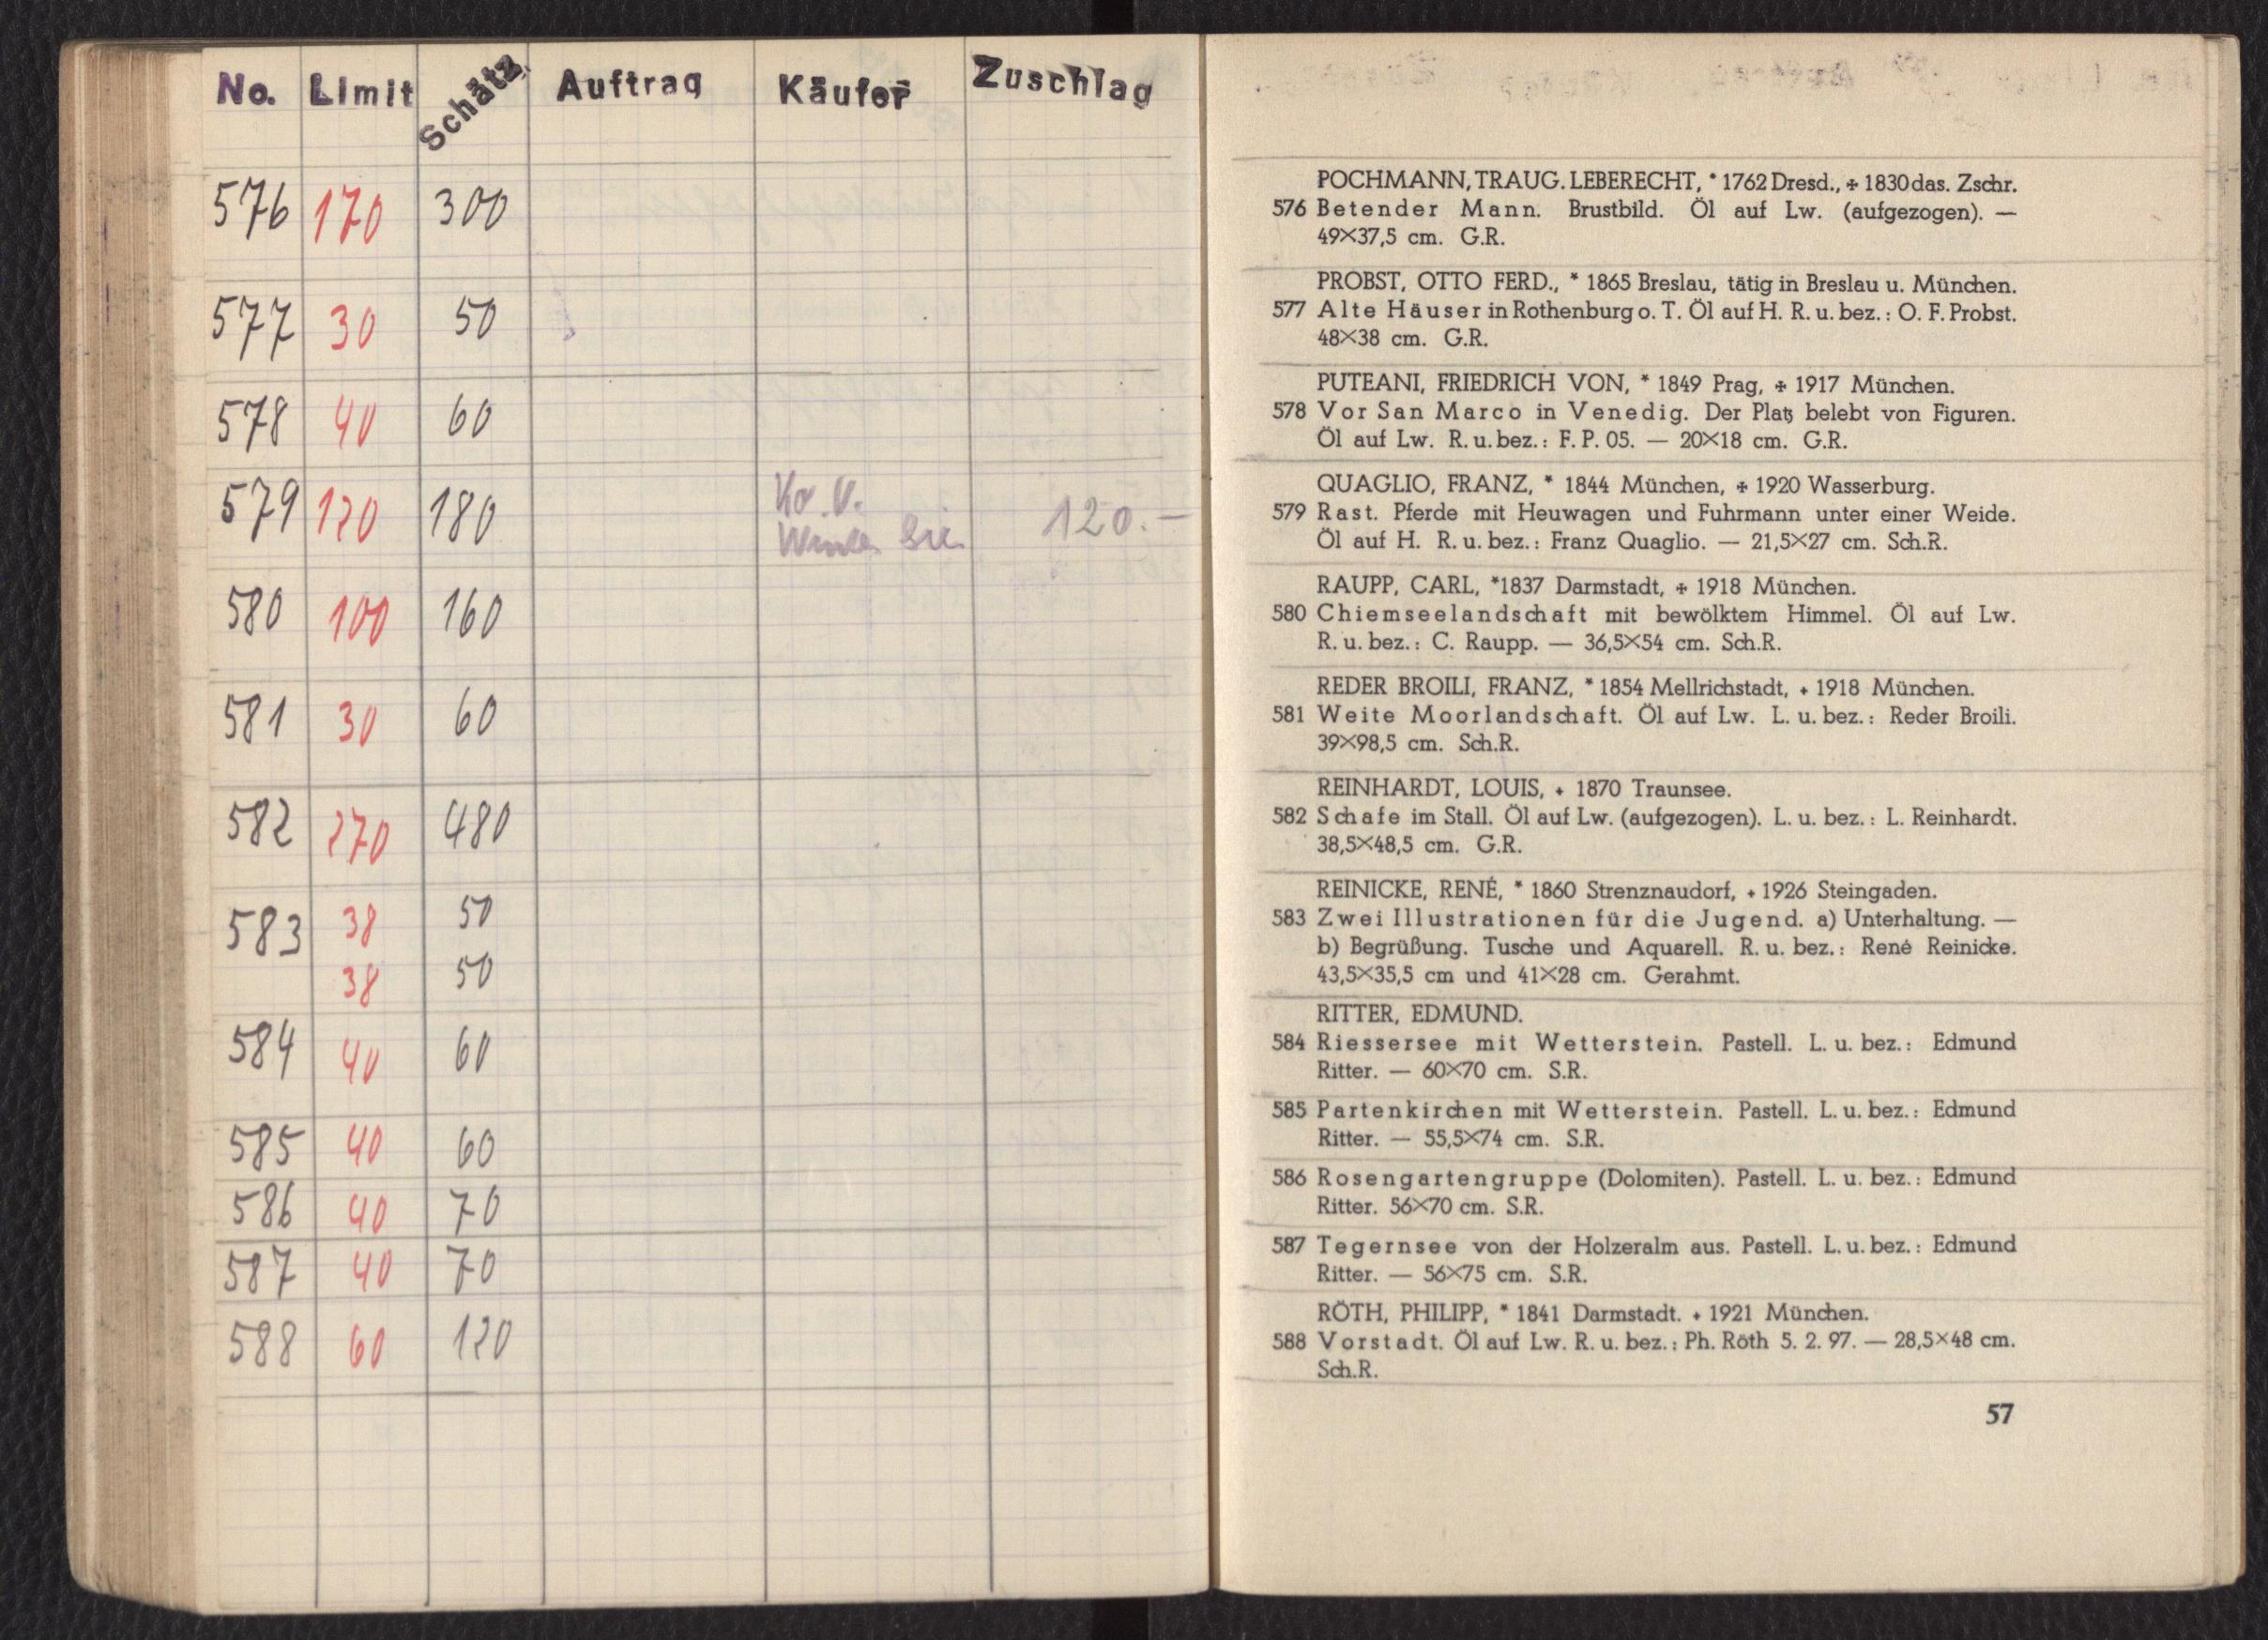 No. Limit Schätz. Auftrag Käufer Zuschlag
576 170 300
577 30 50
578 40 60
579 120 180 120.—
580 100 160
581 30 60
582 270 480
583 38 50
38 50
584 40 60
585 40 60
586 40 70
587 40 70
588 60 120
POCHMANN, TRAUG. LEBERECHT, * 1762 Dresd., ✠ 1830 das. Zschr.
576 Betender Mann. Brustbild. Öl auf Lw. (aufgezogen). —
49×37,5 cm. G.R.
PROBST, OTTO FERD., * 1865 Breslau, tätig in Breslau u. München.
577 Alte Häuser in Rothenburg o. T. Öl auf H. R. u. bez.: O. F. Probst.
48×38 cm. G.R.
PUTEANI, FRIEDRICH VON, * 1849 Prag, ✠ 1917 München.
578 Vor San Marco in Venedig. Der Platz belebt von Figuren.
Öl auf Lw. R. u. bez.: F. P. 05. — 20×18 cm. G.R.
QUAGLIO, FRANZ, * 1844 München, ✠ 1920 Wasserburg.
579 Rast. Pferde mit Heuwagen und Fuhrmann unter einer Weide.
Öl auf H. R. u. bez.: Franz Quaglio. — 21,5×27 cm. Sch.R.
RAUPP, CARL, *1837 Darmstadt, ✠ 1918 München.
580 Chiemseelandschaft mit bewölktem Himmel. Öl auf Lw.
R. u. bez.: C. Raupp. — 36,5×54 cm. Sch.R.
REDER BROILI, FRANZ, * 1854 Mellrichstadt, + 1918 München.
581 Weite Moorlandschaft. Öl auf Lw. L. u. bez.: Reder Broili.
39×98,5 cm. Sch.R.
REINHARDT, LOUIS, + 1870 Traunsee.
582 Schafe im Stall. Öl auf Lw. (aufgezogen). L. u. bez.: L. Reinhardt.
38,5×48,5 cm. G.R.
REINICKE, RENÉ, * 1860 Strenznaudorf, + 1926 Steingaden.
583 Zwei Illustrationen für die Jugend. a) Unterhaltung. —
b) Begrüßung. Tusche und Aquarell. R. u. bez.: René Reinicke.
43,5×35,5 cm und 41×28 cm. Gerahmt.
RITTER, EDMUND.
584 Riessersee mit Wetterstein. Pastell. L. u. bez.: Edmund
Ritter. — 60×70 cm. S.R.
585 Partenkirchen mit Wetterstein. Pastell. L. u. bez.: Edmund
Ritter. — 55,5×74 cm. S.R.
586 Rosengartengruppe (Dolomiten). Pastell. L. u. bez.: Edmund
Ritter. 56×70 cm. S.R.
587 Tegernsee von der Holzeralm aus. Pastell. L. u. bez.: Edmund
Ritter. — 56×75 cm. S.R.
RÖTH, PHILIPP, * 1841 Darmstadt. + 1921 München.
588 Vorstadt. Öl auf Lw. R. u. bez.: Ph. Röth 5. 2. 97. — 28,5×48 cm.
Sch.R.
57